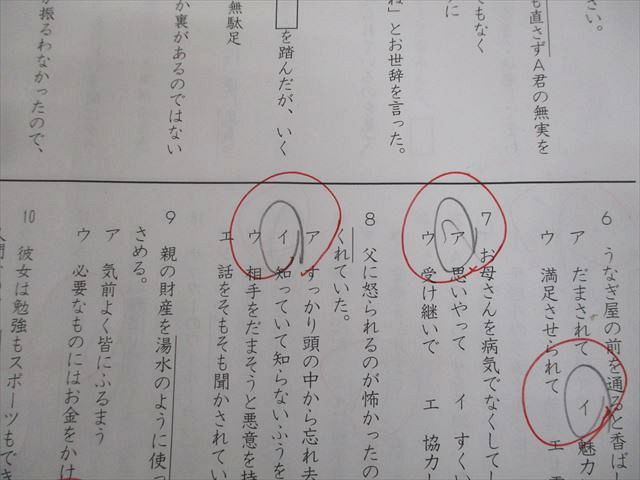 さい。
も直さずA君の無実を
でもなく
に
ね」とお世辞を言った。
を踏んだが、いく
無駄足
か裏があるのではない
が振るわなかったので、
6 うなぎ屋の前を通ると香ば
ア だまされて イ 魅力
ウ 満足させられて エ
7 お母さんを病気でなくして
ア 思いやって イ すくい
ウ 受け継いで エ 協力し
8 父に怒られるのが怖かったの
くれていた。
ア すっかり頭の中から忘れ去
イ 知っていて知らないふうを
ウ 相手をだまそうと悪意を持
エ 話をそもそも聞かされてい
9 親の財産を湯水のように使っ
さめる。
ア 気前よく皆にふるまう
ウ 必要なものにはお金をかけ
10 彼女は勉強もスポーツもでき